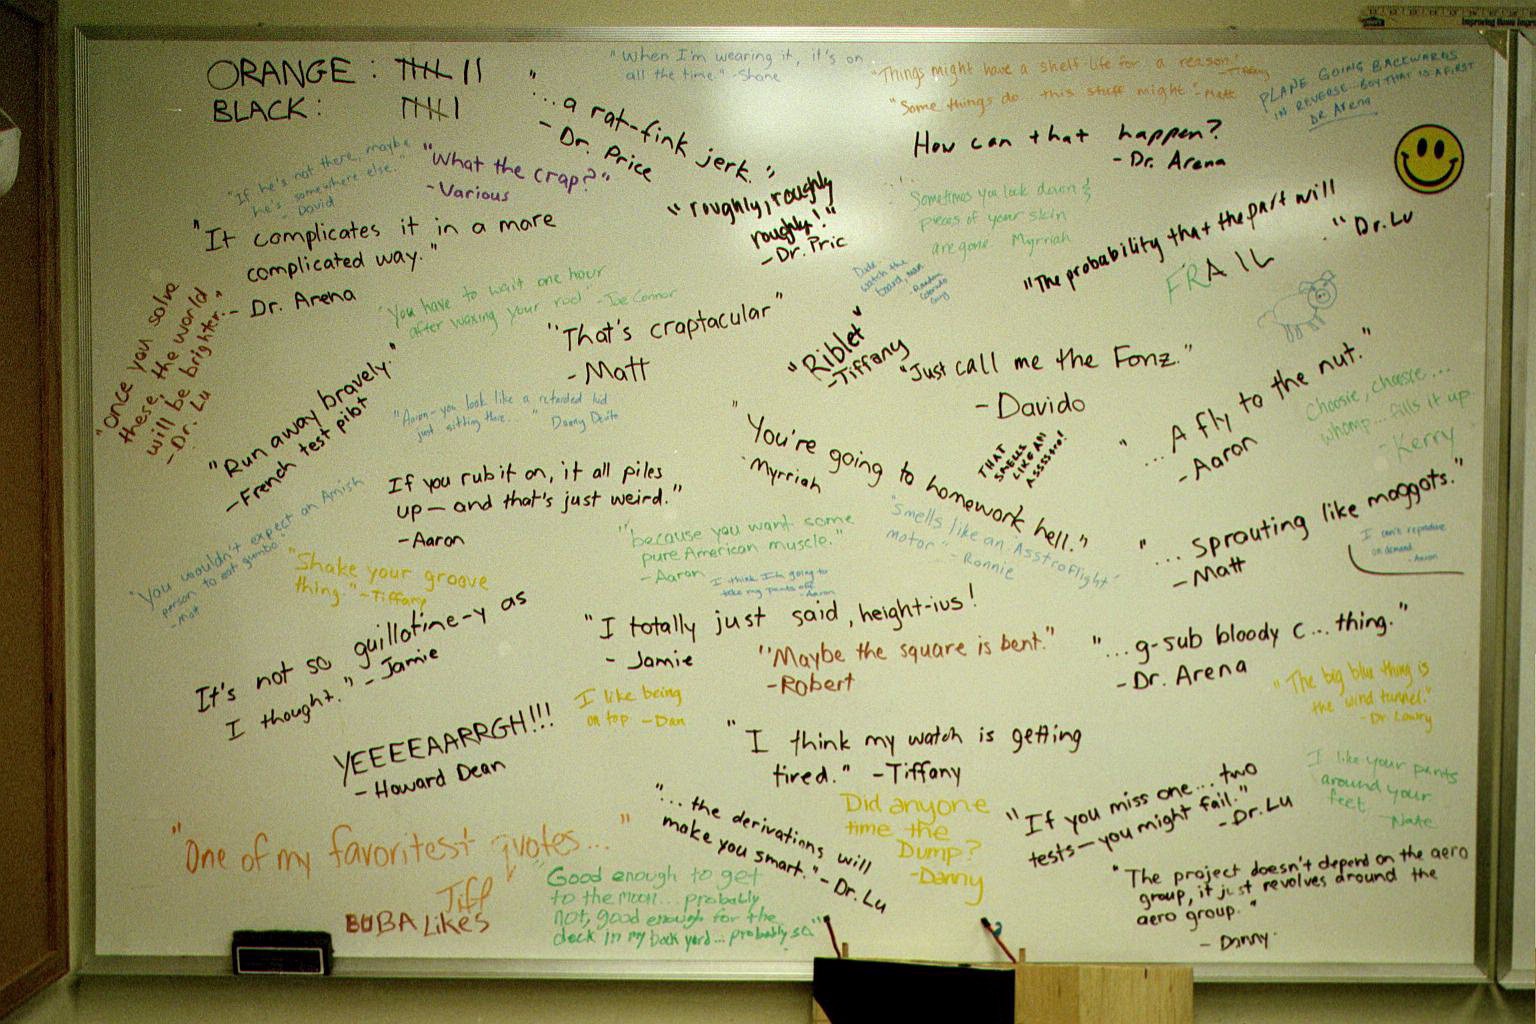 ORANGE: 𝍸 II
BLACK: 𝍸 I
"When I'm wearing it, it's on
all the time" -Shane
"Things might have a shelf life for a reason." -Tiffany
"Some things do... this stuff might." -Matt
PLANE GOING BACKWARDS
IN REVERSE...BOY THAT IS A FIRST
DR Arena
"...a rat-fink jerk."
- Dr. Price
How can that happen?
- Dr. Arena
"If he's not there, maybe
he's somewhere else."
- David
"What the crap?"
-Various
"roughly, roughly
roughly!"
-Dr. Pric
Sometimes you look down &
pieces of your skin
are gone. Myrriah
"The probability that the part will
FRAIL ." Dr. Lu
"It complicates it in a more
complicated way."
- Dr. Arena
Dude
watch the
board, man
-Random
Colorado
Guy
"You have to wait one hour
after waxing your rod" -Joe Connor
"Once you solve
these, the world
will be brighter."
-Dr. Lu
"That's craptacular"
-Matt
"Riblet"
-Tiffany
"Just call me the Fonz."
-Davido
"Run away bravely."
-French test pilot
"Aaron- you look like a retarded kid
just sitting there..." Danny Devito
"...A fly to the nut."
-Aaron
Choosie, choosie...
whomp...fills it up
-Kerry
"You're going to homework hell."
-Myrriah
THAT
SMELLS
LIKE AN
ASSSSTRO!
If you rub it on, it all piles
up— and that's just weird."
-Aaron
"You wouldn't expect an Amish
person to eat gumbo."
-Matt
"because you want some
pure American muscle."
-Aaron
"smells like an Asstroflight
motor" -Ronnie
"...sprouting like maggots."
-Matt
I can't reproduce
on demand
-Aaron
"Shake your groove
thing." -Tiffany
I think I'm going to
take my pants off
-Aaron
It's not so guillotine-y as
I thought." -Jamie
"I totally just said, height-ius!
- Jamie
"Maybe the square is bent."
-Robert
"...g-sub bloody c...thing."
-Dr. Arena
I like being
on top -Dan
"The big blue thing is
the wind tunnel."
-Dr Lowry
YEEEEAARRGH!!!
-Howard Dean
"I think my watch is getting
tired." -Tiffany
I like your pants
around your
feet
-Nate
"...the derivations will
make you smart." -Dr. Lu
Did anyone
time the
Dump?
-Danny
"If you miss one...two
tests—you might fail."
-Dr. Lu
"One of my favoritest quotes..."
Tiff
BUBBA Likes
"Good enough to get
to the moon...probably
not, good enough for the
deck in my back yard...probably so"
"The project doesn't depend on the aero
group, it just revolves around the
aero group."
- Danny